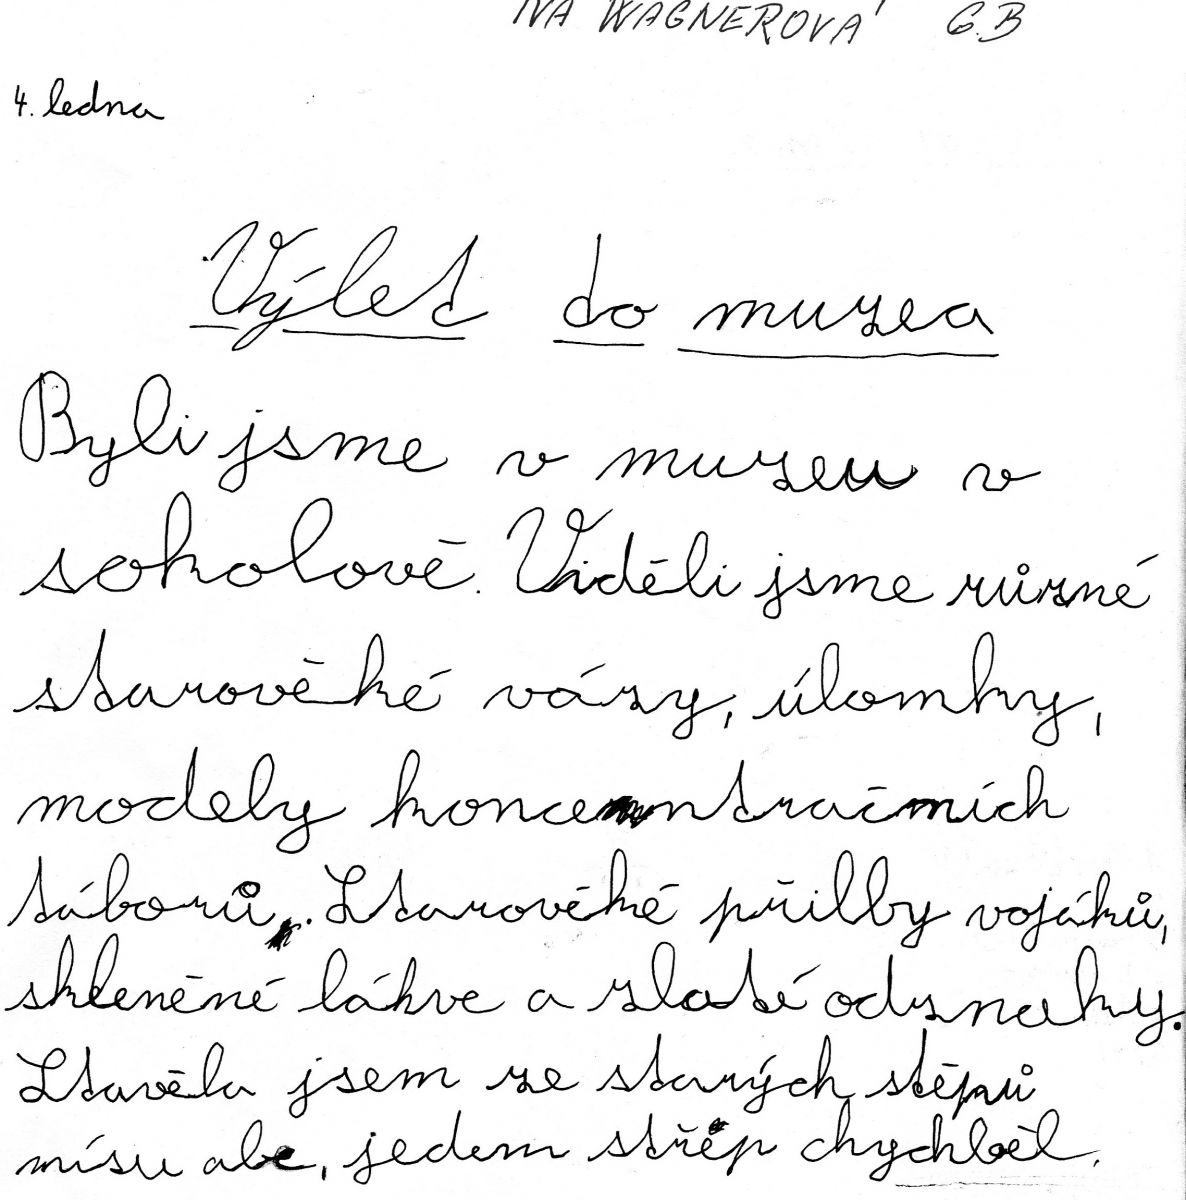 IVA WAGNEROVÁ 6.B
4. ledna
Výlet do muzea
Byli jsme v muzeu v
sokolově. Viděli jsme různé
starověké vázy, úlomky,
modely koncentračních
táborů. Starověké přilby vojáků,
skleněné láhve a zlaté odznaky.
Stavěla jsem ze starých stěpů
mísu ale, jeden střep chychběl.